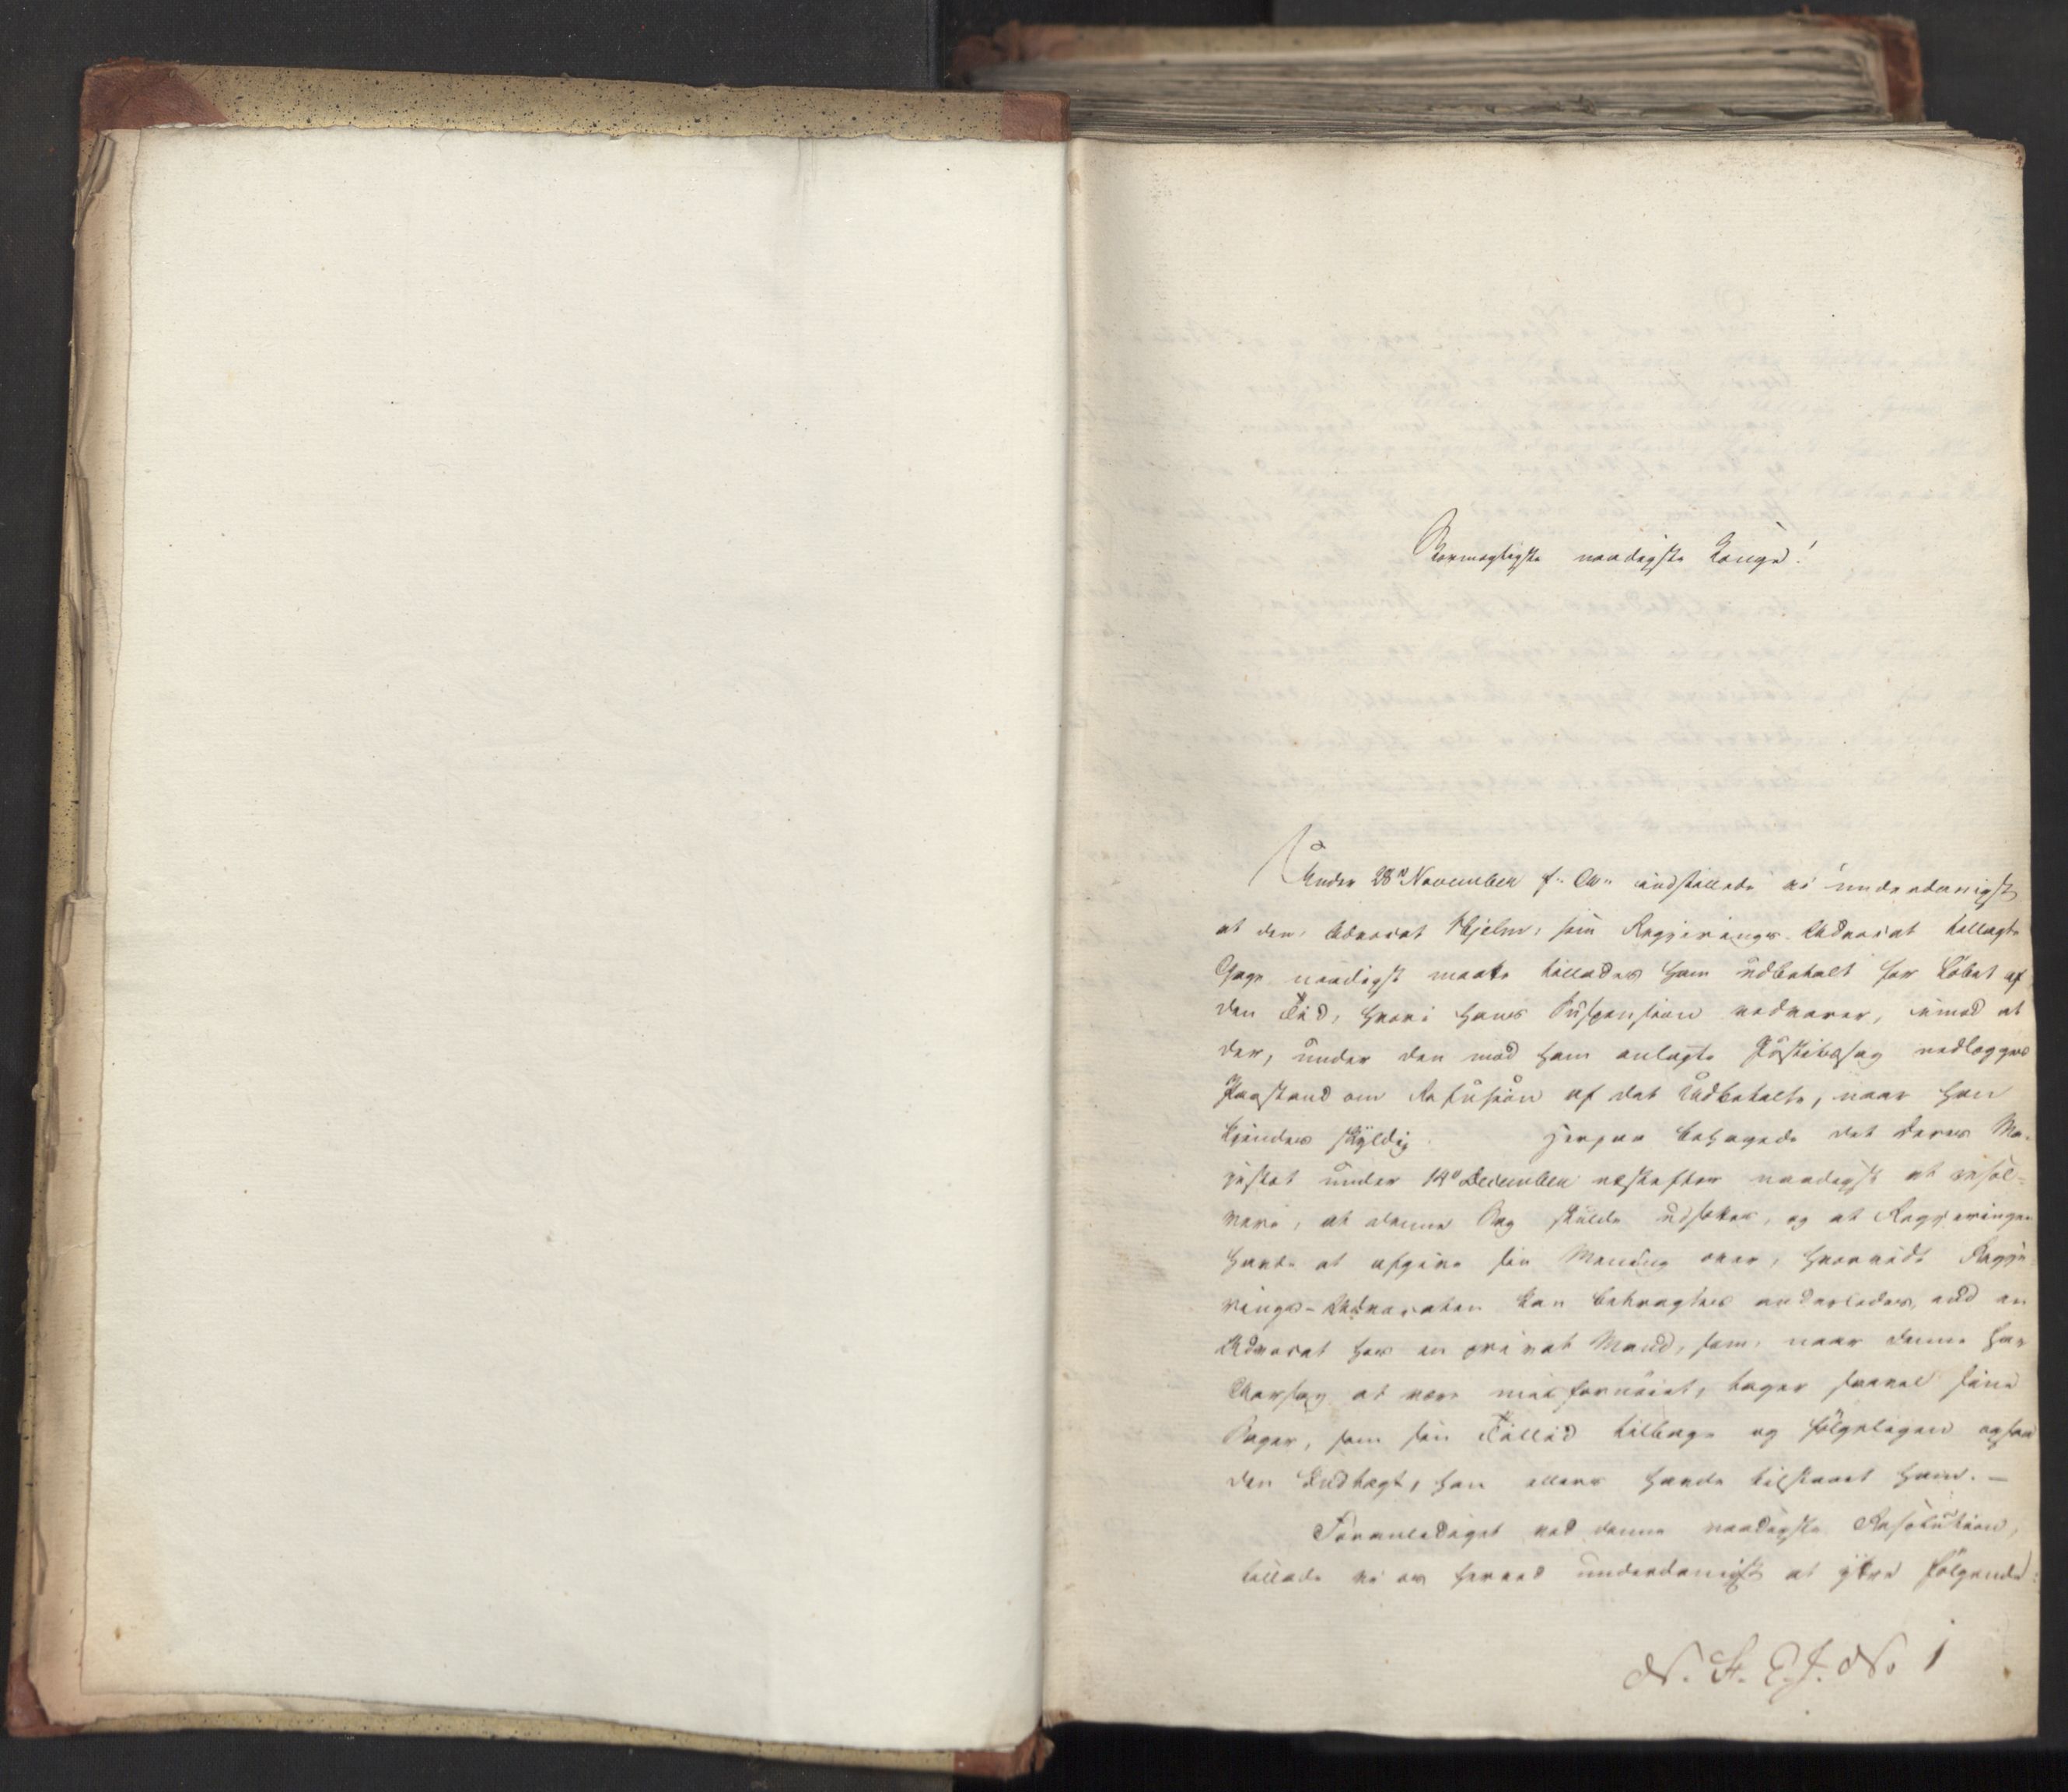 Stormægtigste naadigste Konge!
Under 28de November f. A. indstillede vi underdanigst
at den, Advocat Hjelm, som Regjerings-Advocat tillagte
Gage naadigst maatte tillades ham udbetalt for Løbet af
den Tid, hvori hans Suspension vedvarer, imod at
der, under den mod ham anlagte Justitssag nedlægges
Paastand om Refusion af det Udbetalte, naar han
kjendes skyldig. Herpaa behagede det Deres Ma-
jestæt under 14de December næstefter naadigst at resol-
vere, at denne Sag skulde udsættes, og at Regjeringen
havde at afgive sin Mening over, hvorvidt Regje-
rings-Advocaten kan betragtes anderledes, end en
Advocat hos en privat Mand, som, naar denne har
Aarsag at være misfornøiet, tager saavel sine
Sager, som sin Tillid tilbage og følgeligen ogsaa
den Indtægt, han ellers havde tilstaaet ham. —
Foranlediget ved denne naadigste Resolution,
tillade vi os herved underdanigst at yttre Følgende:
N. St. E. J. No 1